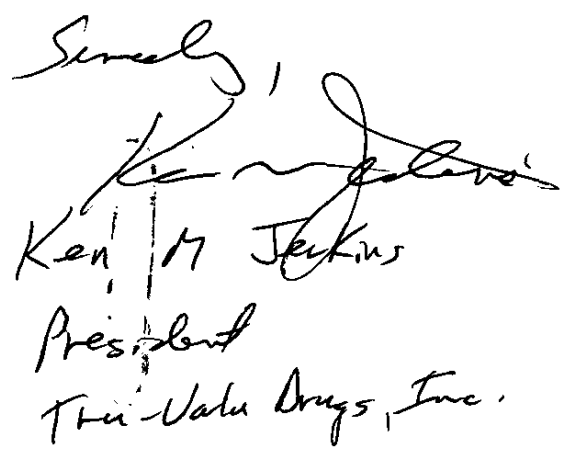 Sincerely,
Ken M Jenkins
Ken M Jenkins
President
Tru-Valu Drugs, Inc.